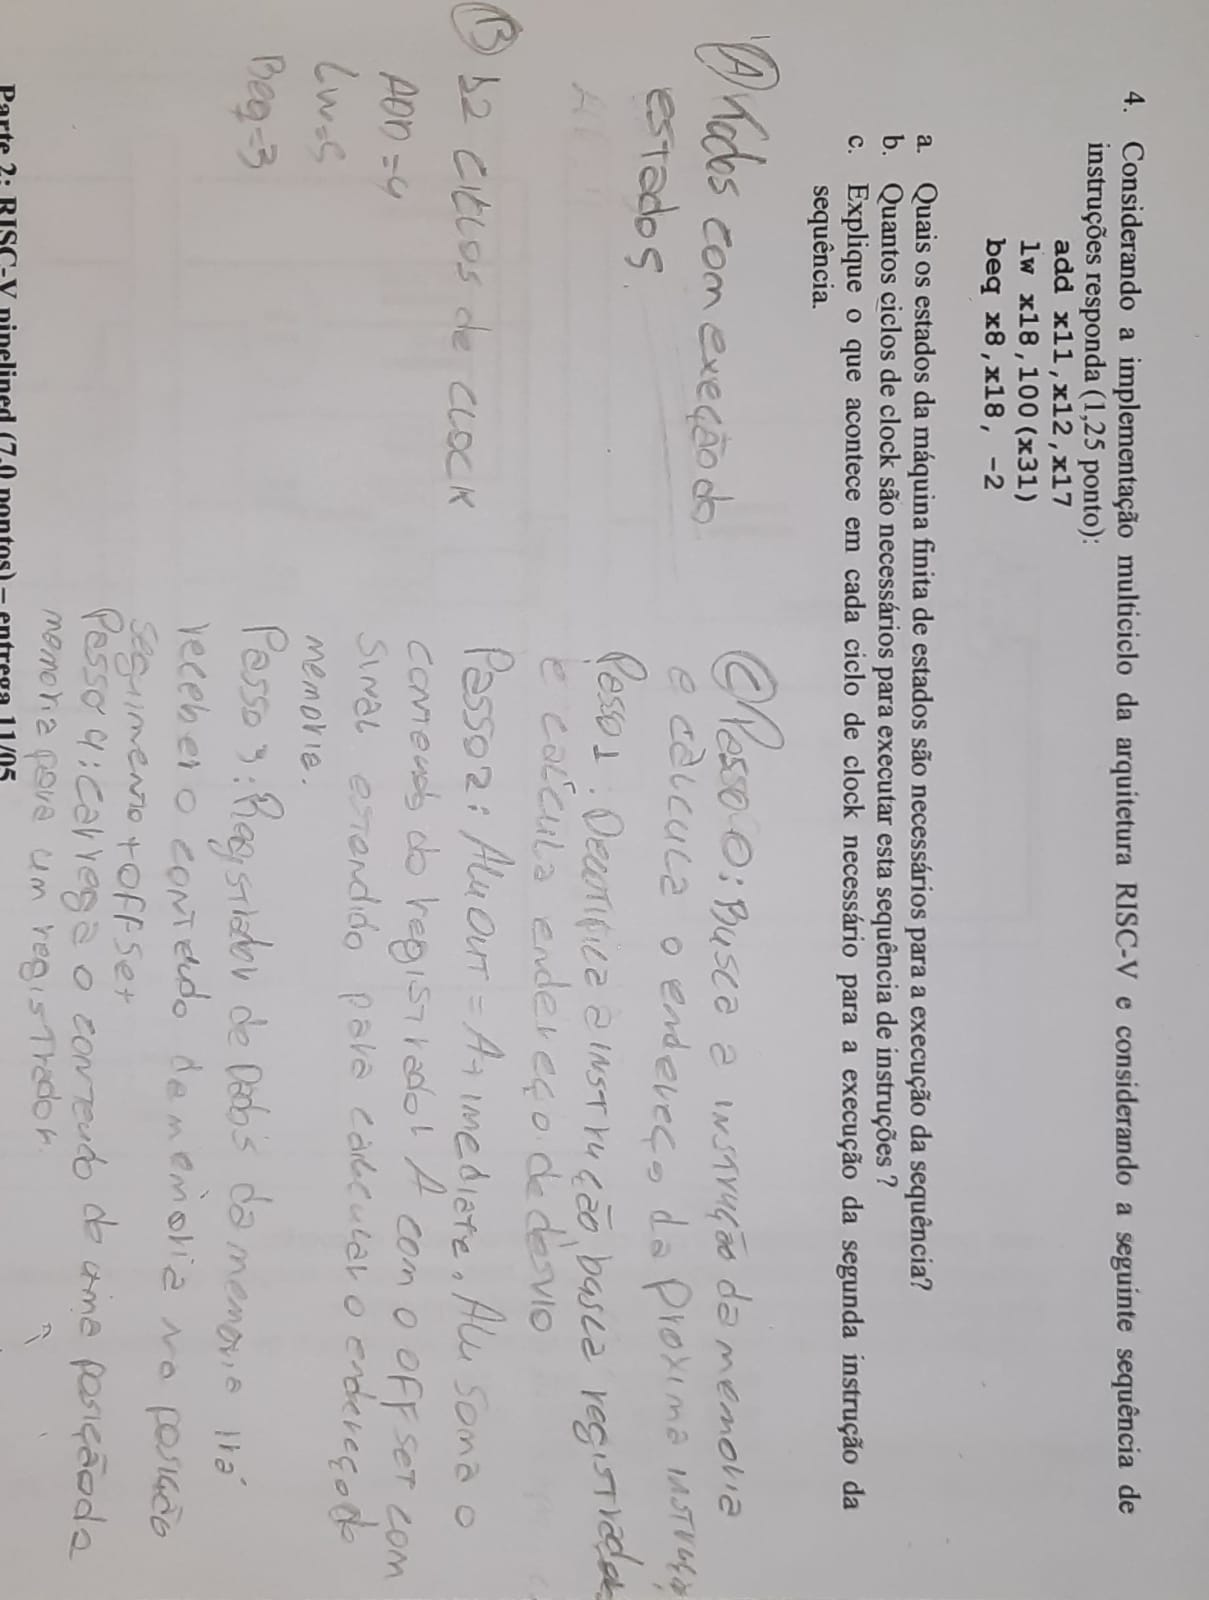 4. Considerando a implementação multiciclo da arquitetura RISC-V e considerando a seguinte sequência de
instruções responda (1,25 ponto):
add x11,x12,x17
lw x18,100(x31)
beq x8,x18, -2
a. Quais os estados da máquina finita de estados são necessários para a execução da sequência?
b. Quantos ciclos de clock são necessários para executar esta sequência de instruções ?
c. Explique o que acontece em cada ciclo de clock necessário para a execução da segunda instrução da
sequência.
(A)
com exeção do
estados.
(B) 12 ciclos de clock
ADD = 4
Lw=5
Beq=3
(C) Passo 0: Busca a instrução da memoria
e calcula o endereço da proxima
Passo 1: a instrução, busca
e calcula endereço de desvio
Passo 2: AluOut = A+ imediate, Alu soma o
do registrador A com o offset com
sinal estendido para calcular o endereço de
memoria.
Passo 3: Registrador de Dados da memoria irá
receber o conteudo da memória na posição
seguimento + offset
Passo 4: carrega o conteudo de uma posição da
memoria para um registrador.
Parte 2: RISC-V pipelined (7,0 pontos) – entrega 11/05